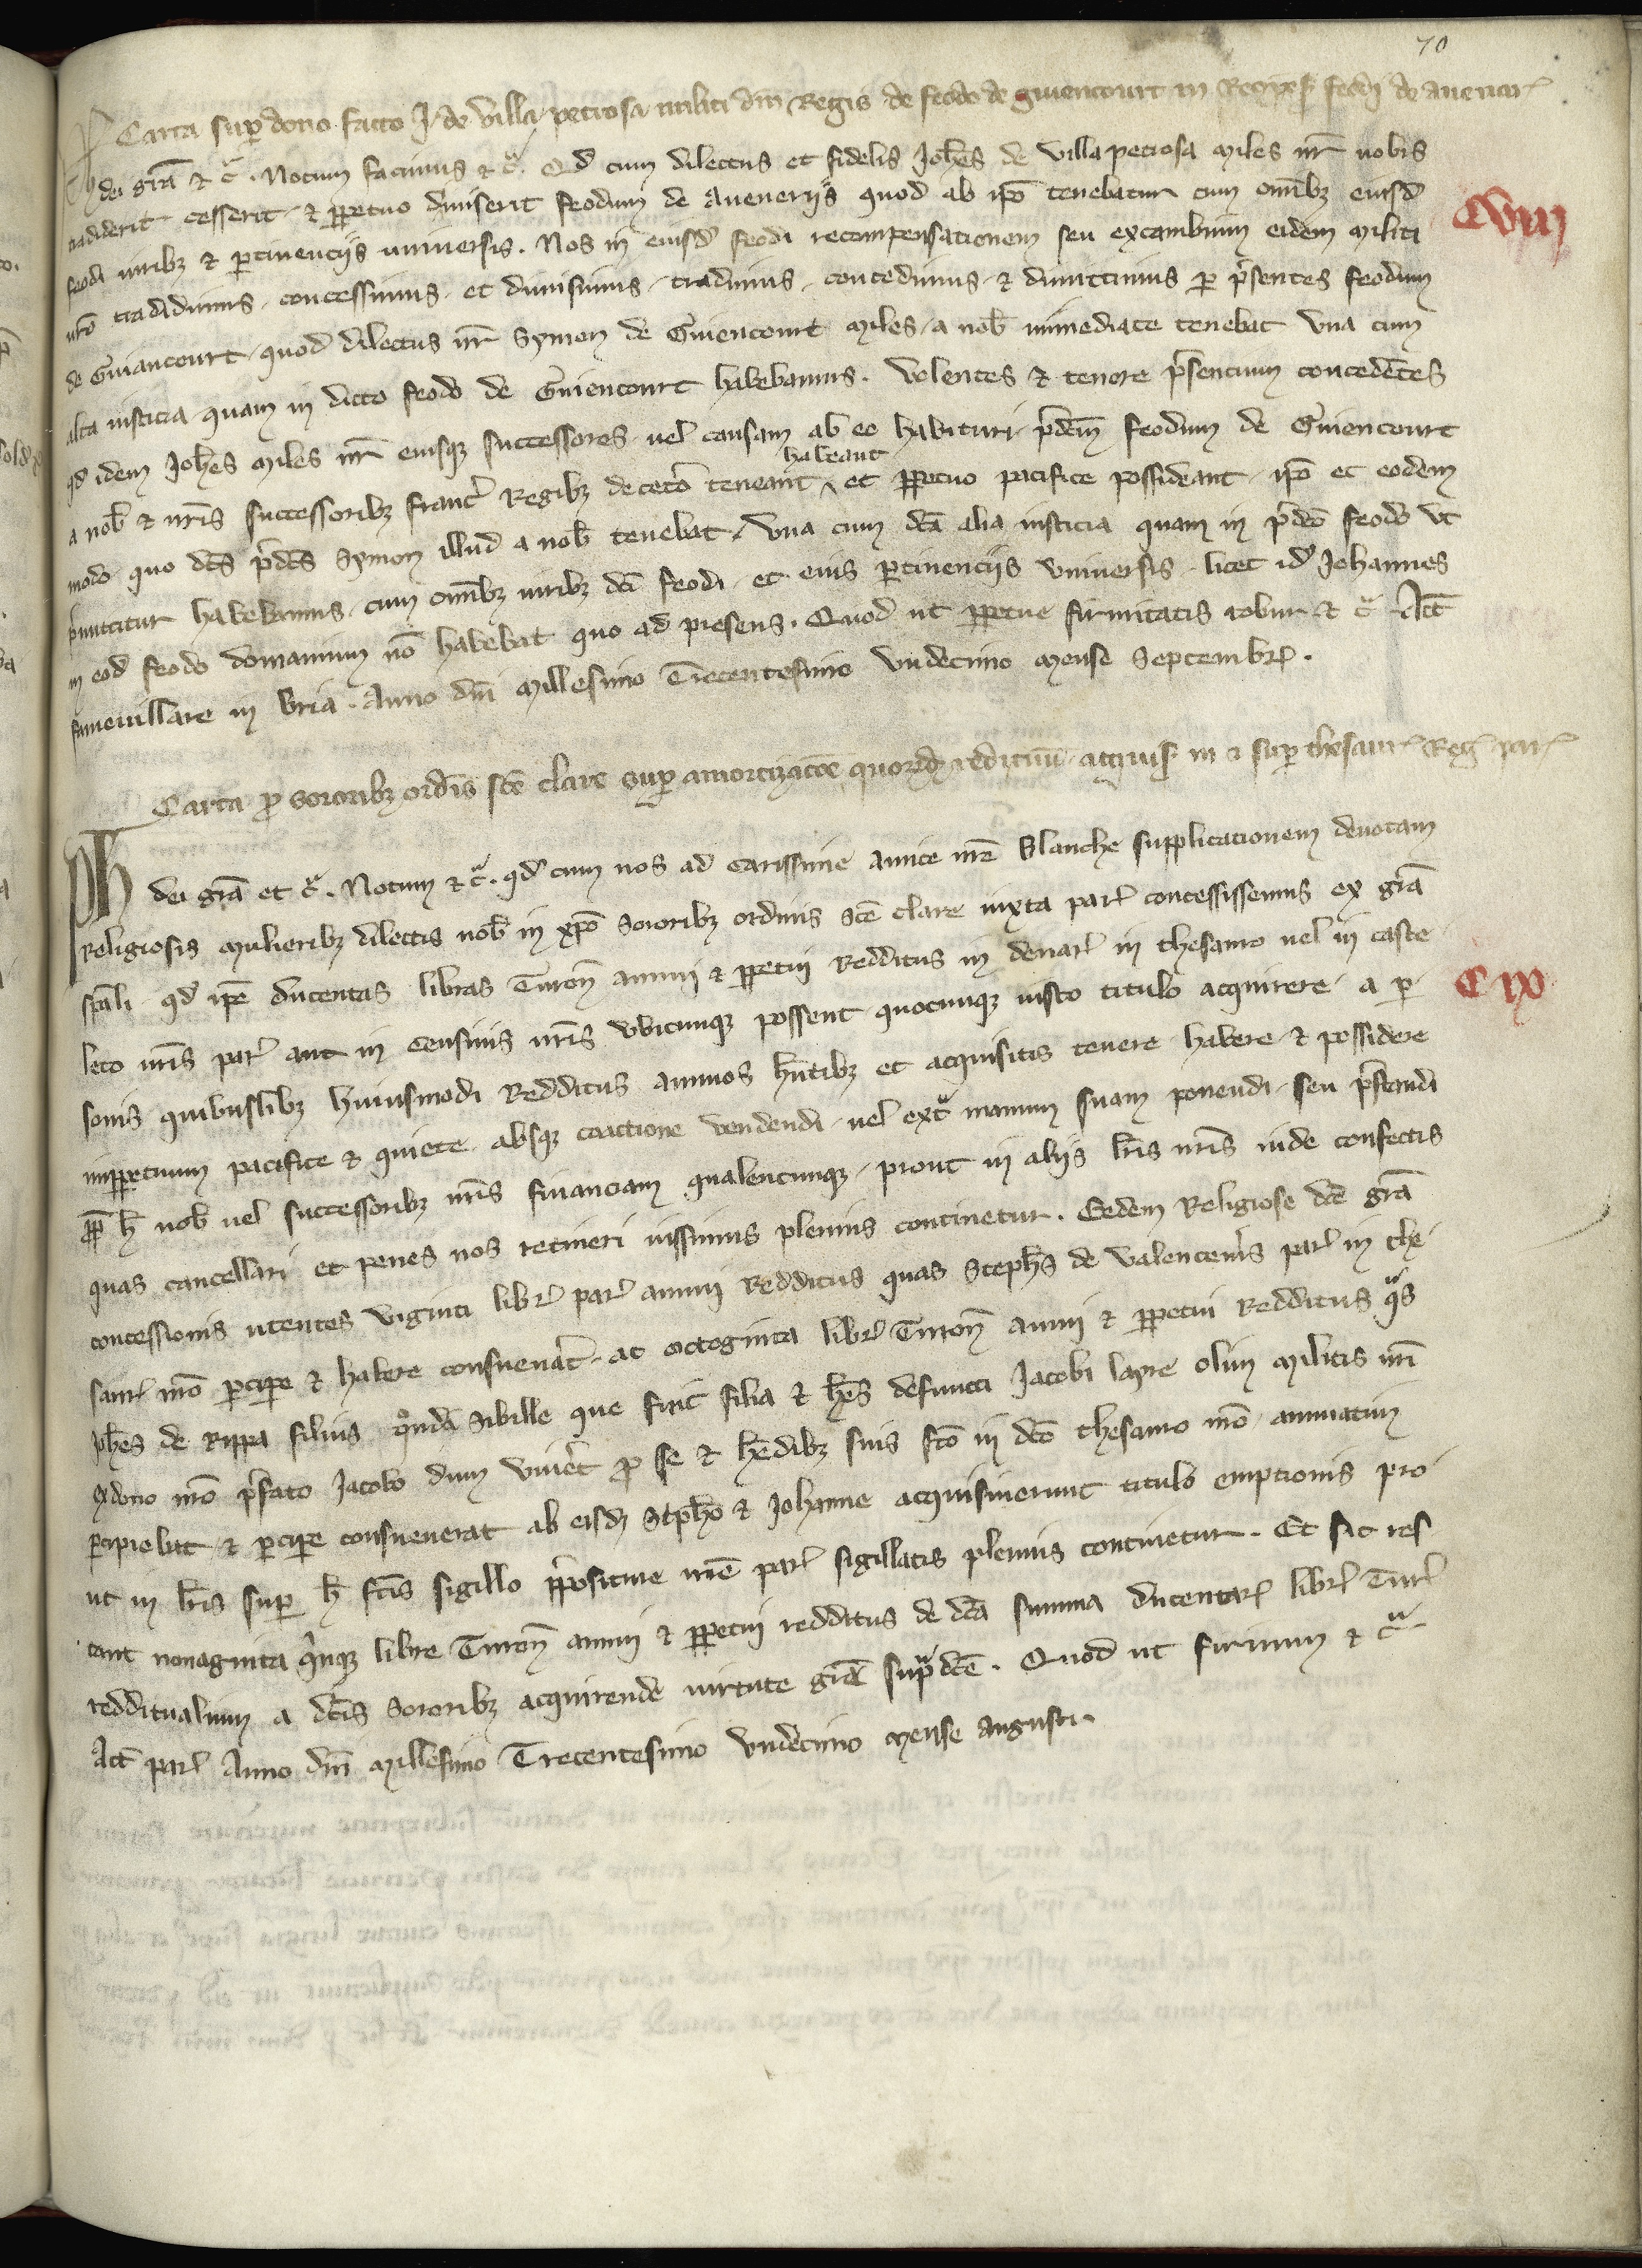 70
Carta sup dono facto J. de Villa petrosa militi dni Regis de feodo de guiencourt in feodi de auener
Ph dei gra et c. Notum facimus et c. Qd cum dilectus et fidelis Johes de Villapetrosa miles nr nobis
tradiderit cesserit et ppetuo dimiserit feodum de Aueneriis quod ab ipo tenebatur cum omibz eiusd
feodi iuribz et ptinenciis uniuersis. Nos in eiusd feodi recompensationem seu excambium eidem militi
CVIII
nro tradidimus, concessimus et dimisimus, tradimus, concedimus et dimittimus p psentes feodum
de Guiancourt quod dilectus nr Symon de Guiencourt miles a nob immediate tenebat una cum
alta iusticia quam in dicto feodo de Guiencourt habebamus. Volentes et tenore psencium concedetes
qd idem Johes miles nr eiusqz successores uel causam ab eo habituri pdcm feodum de Guiencourt
a nob et nris successoribz Franc Regibz decetero teneant habeant et ppetuo pacifice possideant ipo et eodem
modo quo dcs pdcs Symon illud a nob tenebat, una cum dca alta iusticia quam in pdco feodo ut
pmittitur habebamus, cum omibz iuribz dci feodi et eius ptinenciis uniuersis, licet id Johannes
in eod feodo domanium no habebat quo ad presens. Quod ut ppetue firmitatis robur et c. Act
fumeuillare in Bria. Anno dni Millesimo Trecentesimo Undecimo mense Septembr.
Carta p sororibz ordis sce clare sup amortizacoe quord reddituu acquis in et sup thesaur Reg par
Ph dei gra et c. Notum et c. qd cum nos ad carissime amite nre Blanche supplicationem deuotam
religiosis mulieribz dilectis nob in xpo Sororibz ordinis sce clare iuxta par concessissemus ex gra
spali qd ipe ducentas libras Turon annui et ppetui redditus in denar in thesauro uel in caste
CIX
leto nris par aut in censiuis nris ubicunqz possent quocunqz iusto titulo acquirere a p
sonis quibuslibz huiusmodi redditus annuos hntibz et acquisitis tenere habere et possidere
imppetuum pacifice et quiete absqz coactione uendendi uel extra manum suam ponendi seu pstandi
ppt h nob uel successoribz nris financiam qualencunqz, prout in aliis lris nris inde confectis
quas cancellari et penes nos retineri iussimus plenius continetur. Eedem Religiose dce gra
concessionis utentes viginti libr par annui redditus quas Stephs de Valencenis par in the
saur nro pcipe et habere consueuat. ac octoginta libr Turon annui et ppetui redditus qas
Johes de Rippa filius qonda Sibille que fuit filia et hes defuncti Jacobi layre olim militis nri
ex dono nro pfato Jacobo dum uiueret p se et hedibz suis fco in dco thesauro nro annuatim
pcipiebat et pcipe consueuerat ab eisdz Stpho et Johanne acquisiuerunt titulo emptionis pro
ut in lris sup h fcis sigillo ppositure nre par sigillatis plenius continetur. Et sic res
tant nonaginta quinqz libre Turon annui et ppetui redditus de dca summa ducentar libr Tur
reddituatium a dcis Sororibz acquirende uirtute gre supra dce. Quod ut firmum et c.
Act par Anno dni Millesimo Trecentesimo Undecimo mense Augusti